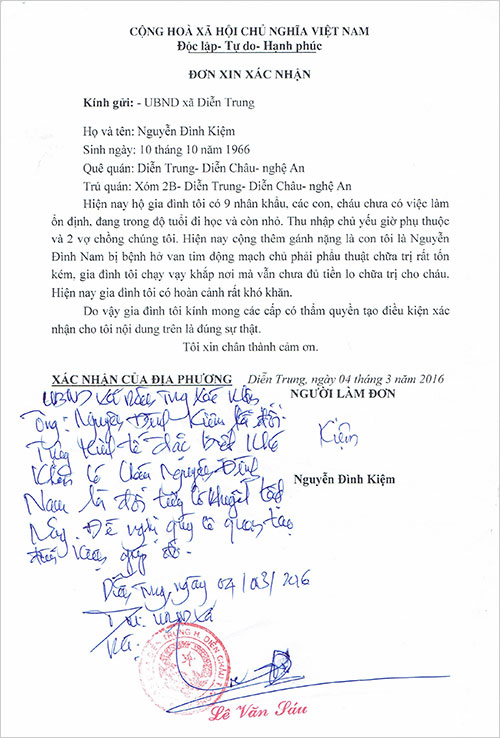 CỘNG HOÀ XÃ HỘI CHỦ NGHĨA VIỆT NAM
Độc lập- Tự do- Hạnh phúc
ĐƠN XIN XÁC NHẬN
Kính gửi: - UBND xã Diễn Trung
Họ và tên: Nguyễn Đình Kiệm
Sinh ngày: 10 tháng 10 năm 1966
Quê quán: Diễn Trung- Diễn Châu- nghệ An
Trú quán: Xóm 2B- Diễn Trung- Diễn Châu- nghệ An
Hiện nay hộ gia đình tôi có 9 nhân khẩu, các con, cháu chưa có việc làm
ổn định, đang trong độ tuổi đi học và còn nhỏ. Thu nhập chủ yếu giờ phụ thuộc
và 2 vợ chồng chúng tôi. Hiện nay cộng thêm gánh nặng là con tôi là Nguyễn
Đình Nam bị bệnh hở van tim động mạch chủ phải phẫu thuật chữa trị rất tốn
kém, gia đình tôi chạy vạy khắp nơi mà vẫn chưa đủ tiền lo chữa trị cho cháu.
Hiện nay gia đình tôi có hoàn cảnh rất khó khăn.
Do vậy gia đình tôi kính mong các cấp có thẩm quyền tạo điều kiện xác
nhận cho tôi nội dung trên là đúng sự thật.
Tôi xin chân thành cảm ơn.
XÁC NHẬN CỦA ĐỊA PHƯƠNG
Diễn Trung, ngày 04 tháng 3 năm 2016
NGƯỜI LÀM ĐƠN
Kiệm
Nguyễn Đình Kiệm
UBND xã Diễn Trung xác nhận
Ông: Nguyễn Đình Kiệm là đối
tượng kinh tế đặc biệt khó
khăn có cháu Nguyễn Đình
Nam là đối tượng có khuyết tật
này. Đề nghị quý cơ quan tạo
điều kiện giúp đỡ.
Diễn Trung, ngày 04/03/2016
UBND xã
Lê Văn Sáu